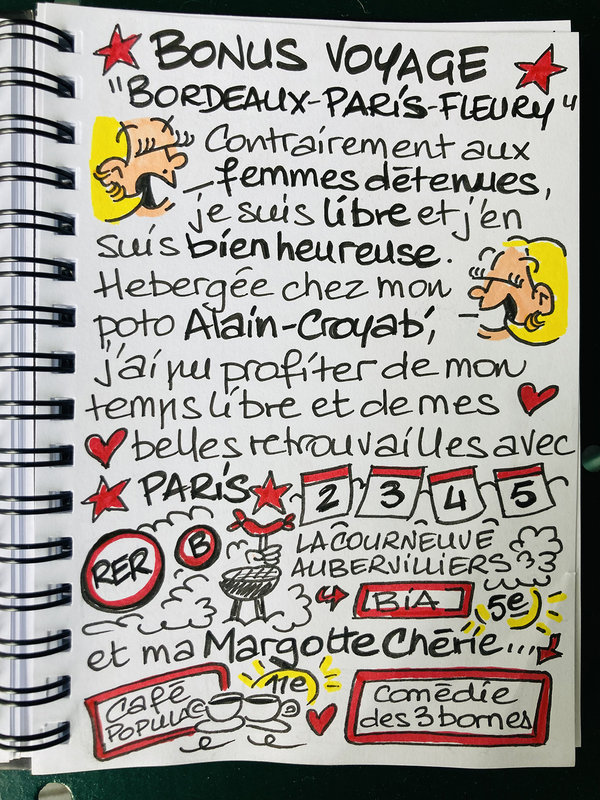 BONUS VOYAGE
"BORDEAUX-PARIS-FLEURY"
Contrairement aux
femmes détenues,
je suis libre et j'en
suis bien heureuse.
Hebergée chez mon
poto Alain-Croyab',
j'ai pu profiter de mon
temps libre et de mes
belles retrouvailles avec
PARIS 2 3 4 5
RER B LA COURNEUVE
AUBERVILLIERS
BiA 5e
et ma Margotte Chérie...
11e
Café Comédie
POPUL des 3 bornes